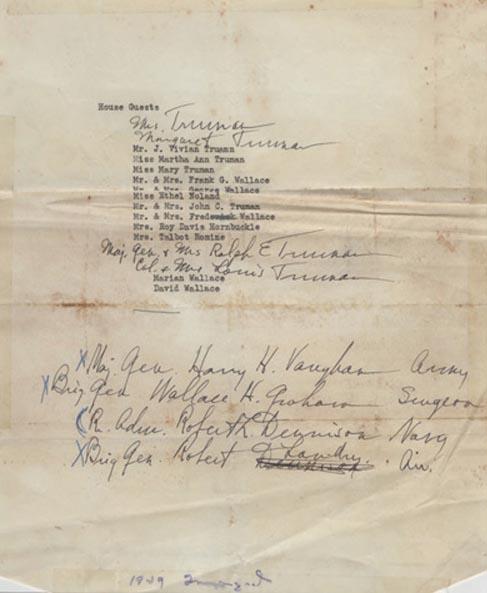 House Guests
Mrs. Truman
Margaret Truman
Mr. J. Vivian Truamn
Miss Martha Ann Truman
Miss Mary Truman
Mr. & Mrs. Frank G. Wallace
Mr. & Mrs. George Wallace
Miss Ethel Noland
Mr. & Mrs. John C. Truman
Mr. & Mrs. Frederick Wallace
Mrs. Roy Davis Hornbuckle
Mrs. Talbot Romine
Maj. Gen. & Mrs Ralph E Truman
Col. & Mrs Louis Truman
Marian Wallace
David Wallace
X Maj. Gen. Harry H. Vaughan Army
X Brig Gen Wallace H. Graham Surgeon
(R. Adm. Robert L Dennison Navy
X Brig Gen. Robert Landry. Air.
1949